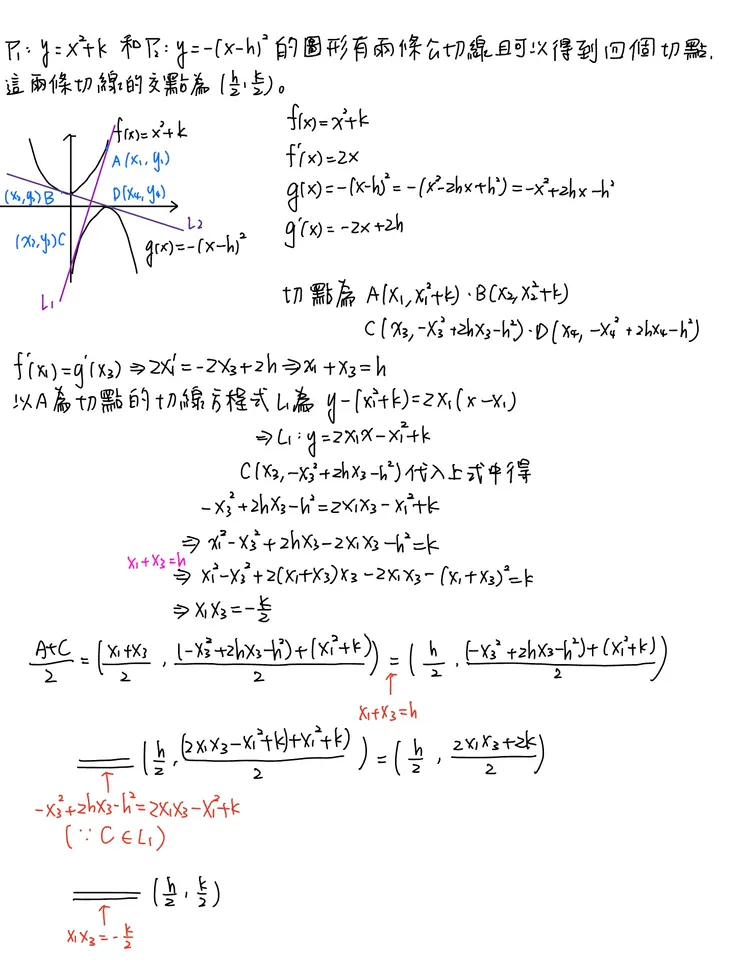 P₁: y=x²+k 和 P₂: y=-(x-h)² 的圖形有兩條公切線且可以得到四個切點,
這兩條切線的交點為 (h/2, k/2)。
f(x)=x²+k
A(x₁, y₁)
(x₂, y₂) B
D(x₄, y₄)
L₂
(x₃, y₃) C
g(x)=-(x-h)²
L₁
f(x)=x²+k
f'(x)=2x
g(x)=-(x-h)²=-(x²-2hx+h²)=-x²+2hx-h²
g'(x)=-2x+2h
切點為 A(x₁, x₁²+k)、B(x₂, x₂²+k)
C(x₃, -x₃²+2hx₃-h²)、D(x₄, -x₄²+2hx₄-h²)
f'(x₁)=g'(x₃) ⇒ 2x₁=-2x₃+2h ⇒ x₁+x₃=h
以A為切點的切線方程式 L₁為 y-(x₁²+k)=2x₁(x-x₁)
⇒ L₁: y=2x₁x-x₁²+k
C(x₃, -x₃²+2hx₃-h²) 代入上式中得
-x₃²+2hx₃-h²=2x₁x₃-x₁²+k
⇒ x₁²-x₃²+2hx₃-2x₁x₃-h²=k
x₁+x₃=h
⇒ x₁²-x₃²+2(x₁+x₃)x₃-2x₁x₃-(x₁+x₃)²=k
⇒ x₁x₃=-k/2
(A+C)/2 = ((x₁+x₃)/2, ((-x₃²+2hx₃-h²)+(x₁²+k))/2) = (h/2, ((-x₃²+2hx₃-h²)+(x₁²+k))/2)
↑
x₁+x₃=h
= (h/2, ((2x₁x₃-x₁²+k)+x₁²+k)/2) = (h/2, (2x₁x₃+2k)/2)
↑
-x₃²+2hx₃-h²=2x₁x₃-x₁²+k
(∵ C∈L₁)
= (h/2, k/2)
↑
x₁x₃=-k/2